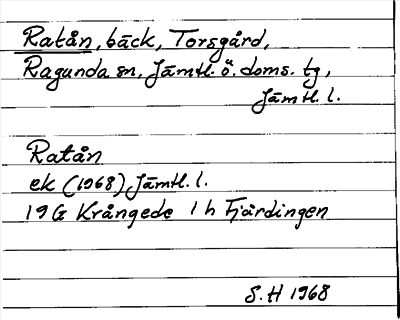 Ratån, bäck, Torsgård,
Ragunda sn, Jämtl. ö. doms. tg,
Jämtl. l.
Ratån
ek (1968) Jämtl. l.
19G Krångede 1h Fjärdingen
S.H 1968